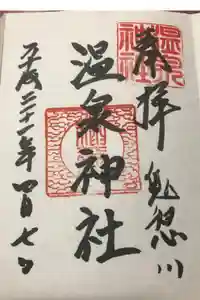 奉拝
鬼怒川
温泉神社
温泉神社
平成二十一年四月七日